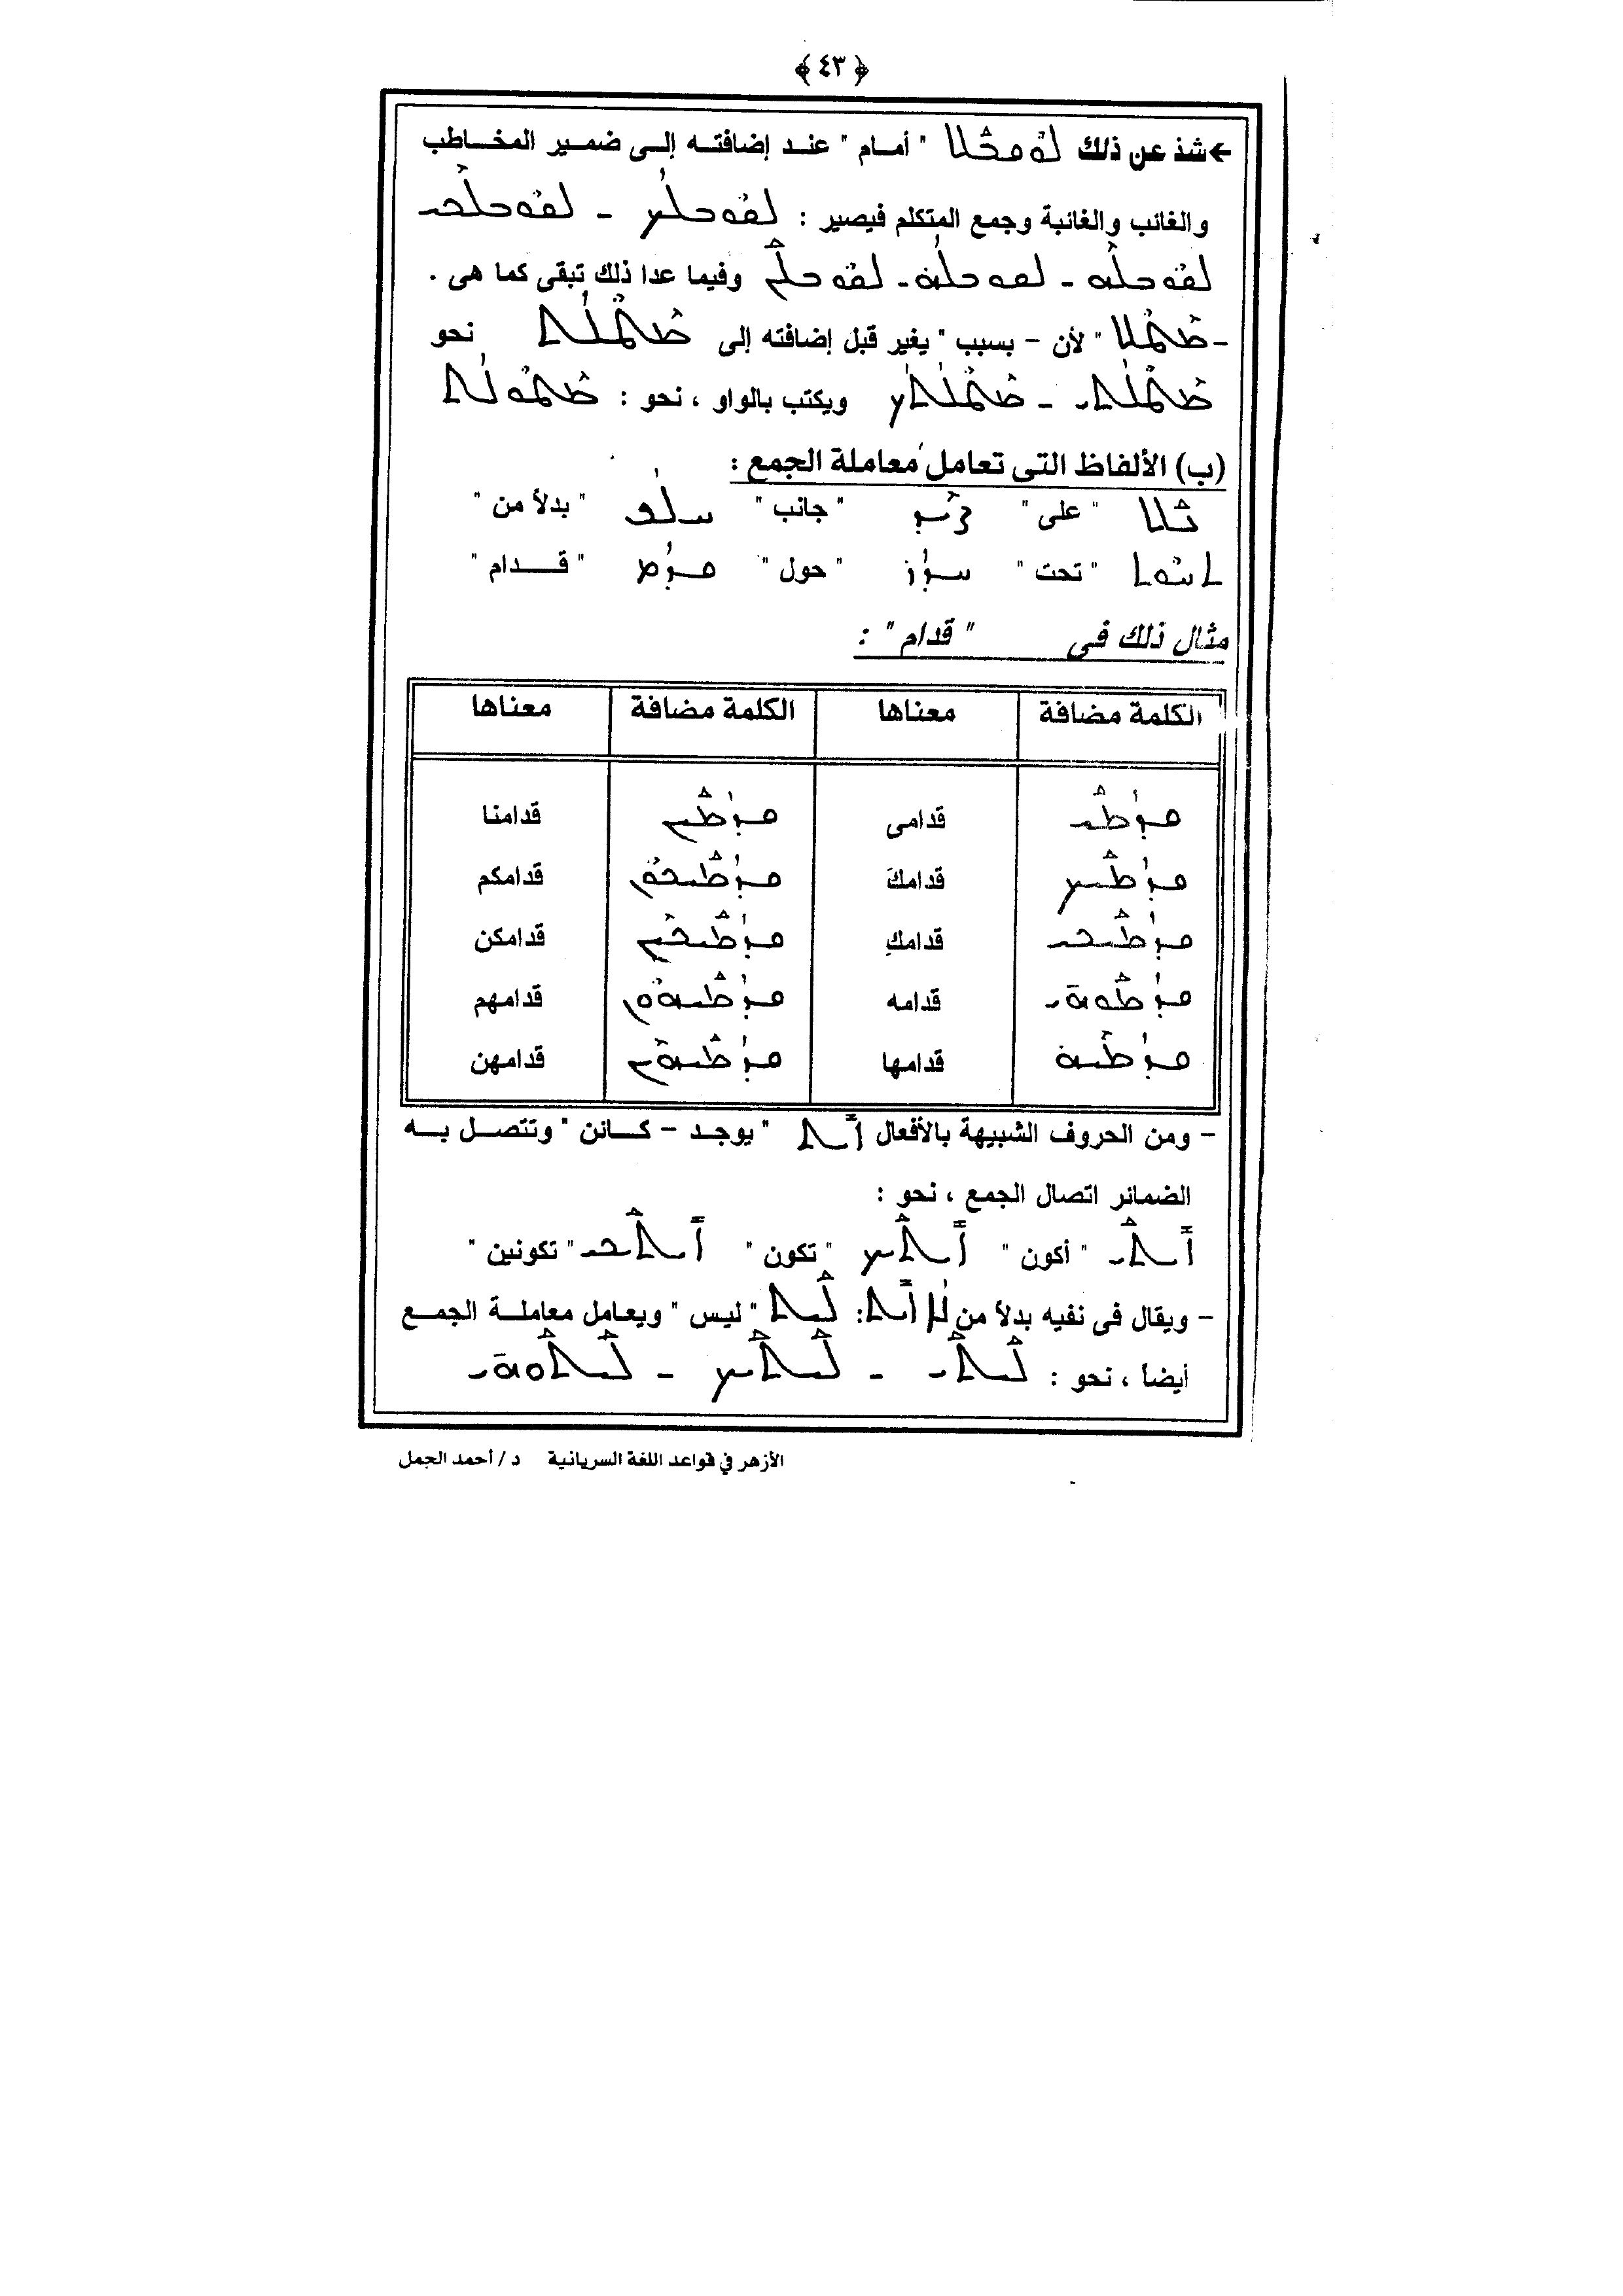 ﴿ ٤٣ ﴾
← شذ عن ذلك ܠܘܩܒܠ " أمام " عند إضافته إلى ضمير المخاطب
والغائب والغائبة وجمع المتكلم فيصير : ܠܩܘܒܠܟ - ܠܩܘܒܠܟܝ
ܠܩܘܒܠܗ - ܠܩܘܒܠܗ - ܠܩܘܒܠܢ وفيما عدا ذلك تبقى كما هى .
- ܡܛܠ " لأن - بسبب " يغير قبل إضافته إلى ܡܛܠܬ نحو
ܡܛܠܬܝ - ܡܛܠܬܟ ويكتب بالواو ، نحو : ܡܛܘܠܬ
(ب) الألفاظ التى تعامل معاملة الجمع :
ܥܠ " على " ܨܝܕ " جانب " ܚܠܦ " بدلاً من "
ܬܚܘܬ " تحت " ܚܕܪ " حول " ܩܕܡ " قدام "
مثال ذلك فى " قدام " :
الكلمة مضافة معناها الكلمة مضافة معناها
ܩܕܡܝ قدامى ܩܕܡܝܢ قدامنا
ܩܕܡܝܟ قدامكَ ܩܕܡܝܟܘܢ قدامكم
ܩܕܡܝܟܝ قدامكِ ܩܕܡܝܟܝܢ قدامكن
ܩܕܡܘܗܝ قدامه ܩܕܡܝܗܘܢ قدامهم
ܩܕܡܝܗ قدامها ܩܕܡܝܗܝܢ قدامهن
- ومن الحروف الشبيهة بالأفعال ܐܝܬ " يوجد - كائن " وتتصل به
الضمائر اتصال الجمع ، نحو :
ܐܝܬܝ " أكون " ܐܝܬܝܟ " تكون " ܐܝܬܝܟܝ " تكونين "
- ويقال فى نفيه بدلاً من ܠܐ ܐܝܬ : ܠܝܬ " ليس " ويعامل معاملة الجمع
أيضاً ، نحو : ܠܝܬܝ - ܠܝܬܝܟ - ܠܝܬܘܗܝ
الأزهر في قواعد اللغة السريانية د / أحمد الجمل